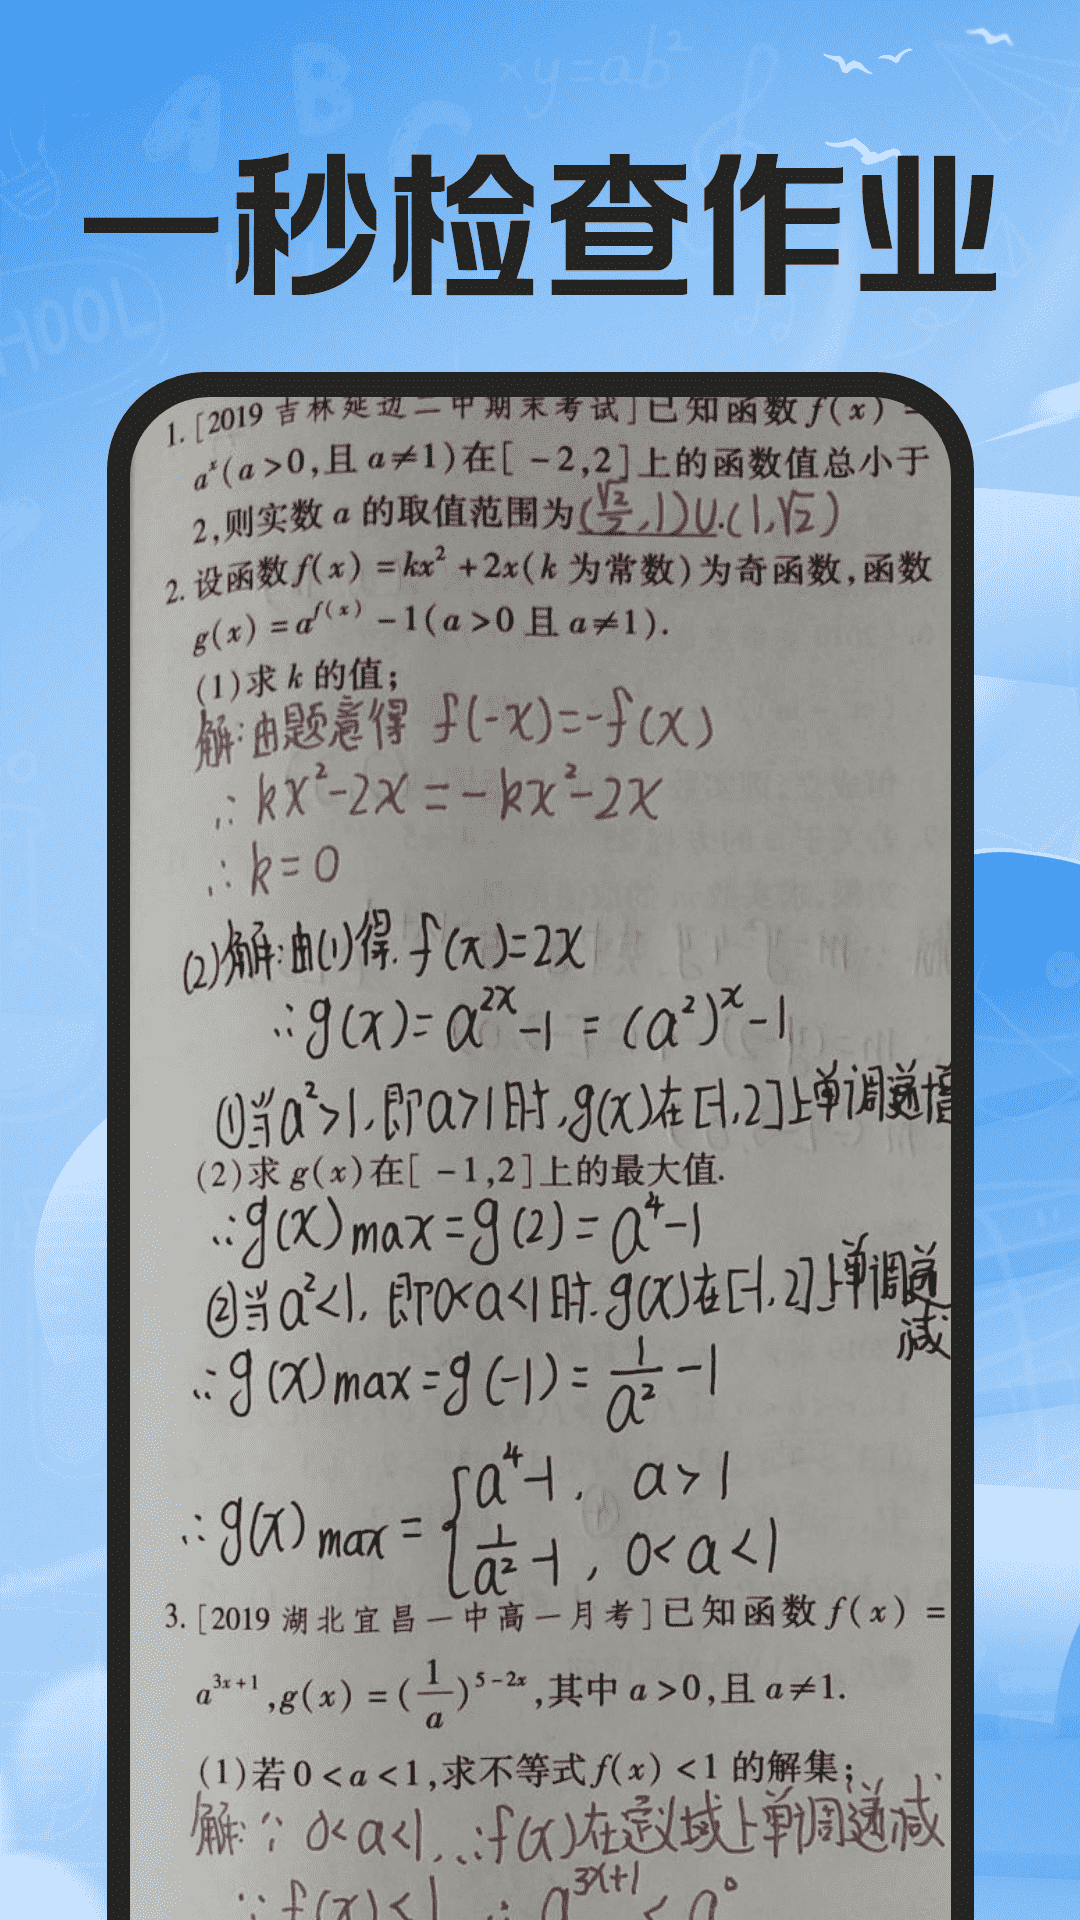 一秒检查作业
1.[2019 吉林延边二中期末考试]已知函数 f(x) =
a^x(a>0,且 a≠1)在[ -2,2]上的函数值总小于
2,则实数 a 的取值范围为(√2/2,1)∪.(1,√2)
2.设函数 f(x) =kx²+2x(k 为常数)为奇函数,函数
g(x) =a^f(x) -1(a>0 且 a≠1).
(1)求 k 的值;
解:由题意得 f(-x)=-f(x)
∴kx²-2x=-kx²-2x
∴k=0
(2)解:由(1)得. f(x)=2x
∴g(x)=a^2x-1=(a²)^x-1
①当a²>1,即a>1时,g(x)在[-1,2]上单调递增
(2)求 g(x)在[ -1,2]上的最大值.
∴g(x)max=g(2)=a⁴-1
②当a²<1,即0<a<1时.g(x)在[-1,2]上单调递
减
∴g(x)max=g(-1)=1/a²-1
∴g(x)max={a⁴-1, a>1
1/a²-1, 0<a<1
3.[2019 湖北宜昌一中高一月考]已知函数 f(x) =
a^3x+1,g(x)=(1/a)^5-2x,其中 a>0,且 a≠1.
(1)若 0<a<1,求不等式 f(x)<1 的解集;
解:∵0<a<1,∴f(x)在定义域上单调递减
∵f(x)<1 ∴a^3x+1<a⁰